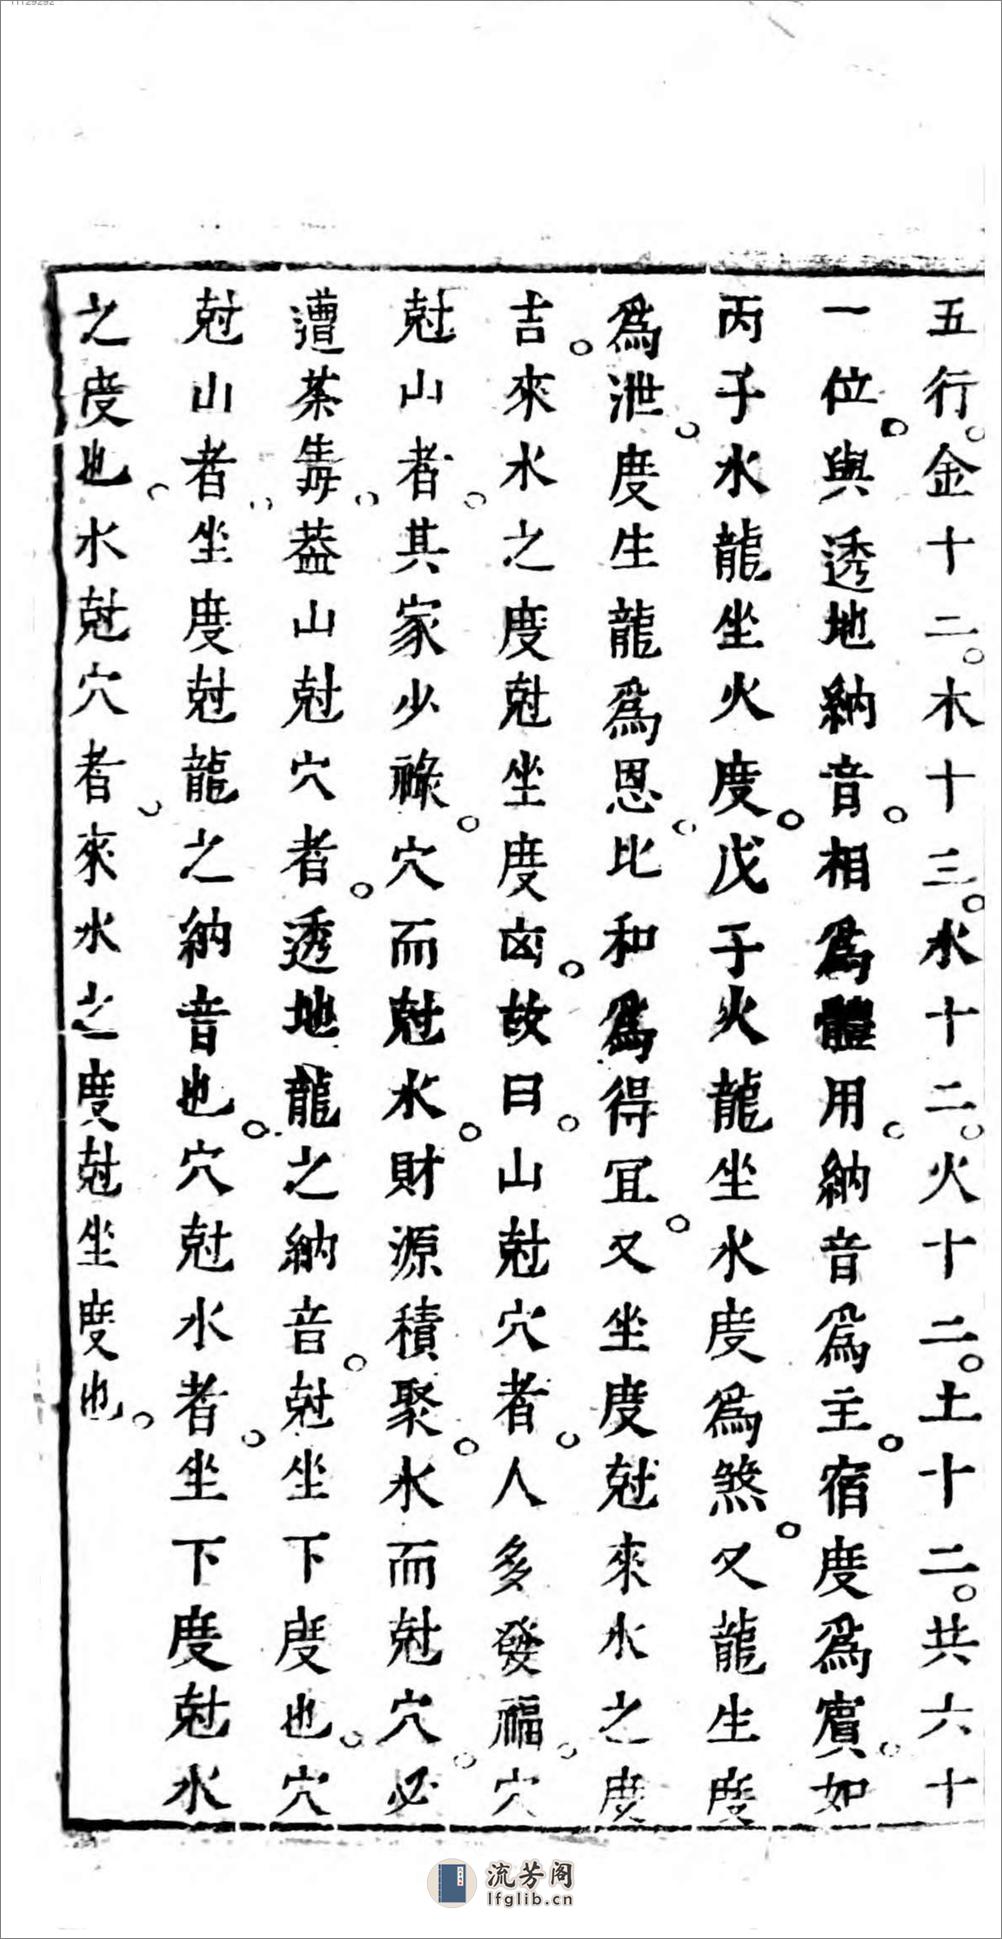 11129292
五行。金十二。木十三。水十二。火十二。土十二。共六十
一位。與透地納音。相為體用。納音為主。宿度為賓。如
丙子水龍坐火度。戊子火龍坐水度為煞。又龍生度
為泄。度生龍為恩。比和為得宜。又坐度尅來水之度
吉。來水之度尅坐度凶。故曰。山尅穴者。人多發福。穴
尅山者。其家少祿。穴而尅水。財源積聚。水而尅穴。必
遭荼毒。葢山尅穴者。透地龍之納音。尅坐下度也。穴
尅山者。坐度尅龍之納音也。穴尅水者。坐下度尅水
之度也。水尅穴者。來水之度尅坐度也。
流芳阁
lfglib.cn